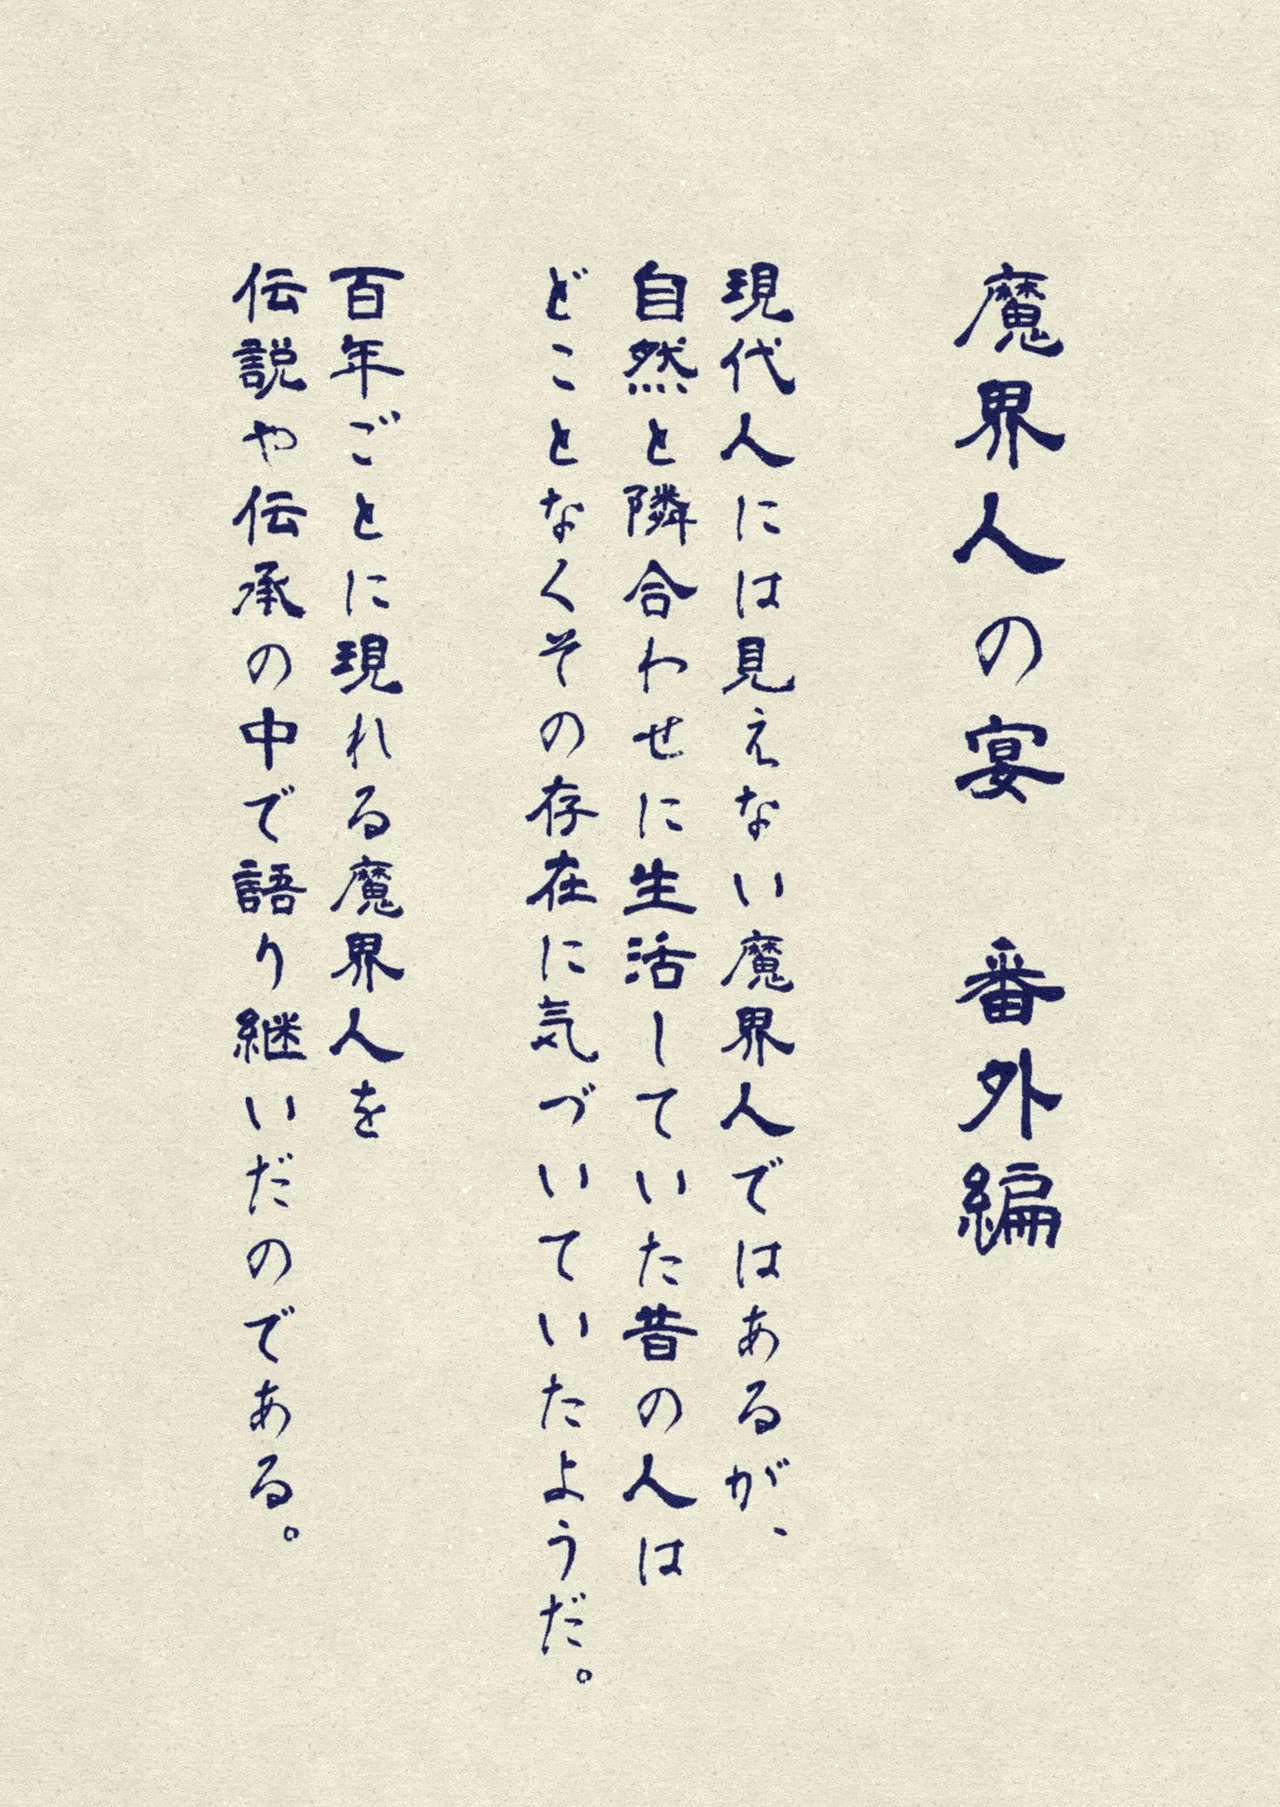 魔界人の宴　番外編
現代人には見えない魔界人ではあるが、
自然と隣合わせに生活していた昔の人は
どことなくその存在に気づいていたようだ。
百年ごとに現れる魔界人を
伝説や伝承の中で語り継いだのである。